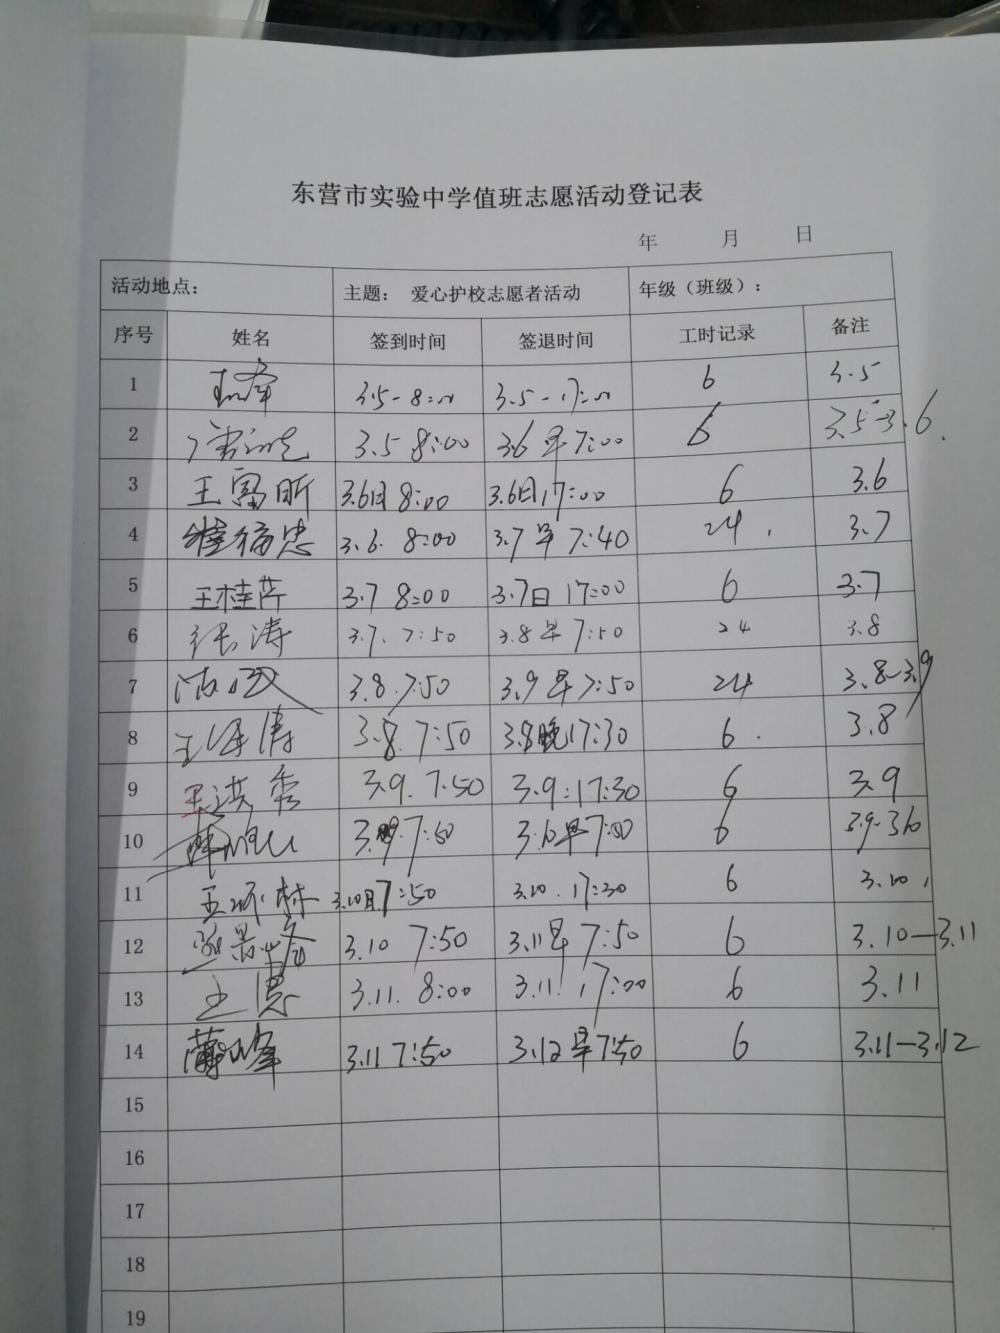 东营市实验中学值班志愿活动登记表
年 月 日
活动地点： 主题： 爱心护校志愿者活动 年级（班级）：
序号 姓名 签到时间 签退时间 工时记录 备注
1 3.5-8:00 3.5-17:00 6 3.5
2 3.5 8:00 3.6 早7:00 6 3.5-3.6.
3 王富昕 3.6日 8:00 3.6日17:00 6 3.6
4 福忠 3.6. 8:00 3.7 早 7:40 24. 3.7
5 王桂芹 3.7 8:00 3.7日 17:00 6 3.7
6 张涛 3.7. 7:50 3.8 早 7:50 24 3.8
7 3.8.7:50 3.9 早7:50 24 3.8-3.9
8 王泽涛 3.8.7:50 3.8晚17:30 6. 3.8
9 王洪秀 3.9.7:50 3.9:17:30 6 3.9
10 7:50 3.10早7:00 6 3.9-3.10
11 王 林 3.10日7:50 3.10.17:30 6 3.10.
12 3.10 7:50 3.11早 7:50 6 3.10-3.11
13 王 3.11. 8:00 3.11.17:00 6 3.11
14 峰 3.11 7:50 3.12早7:50 6 3.11-3.12
15
16
17
18
19